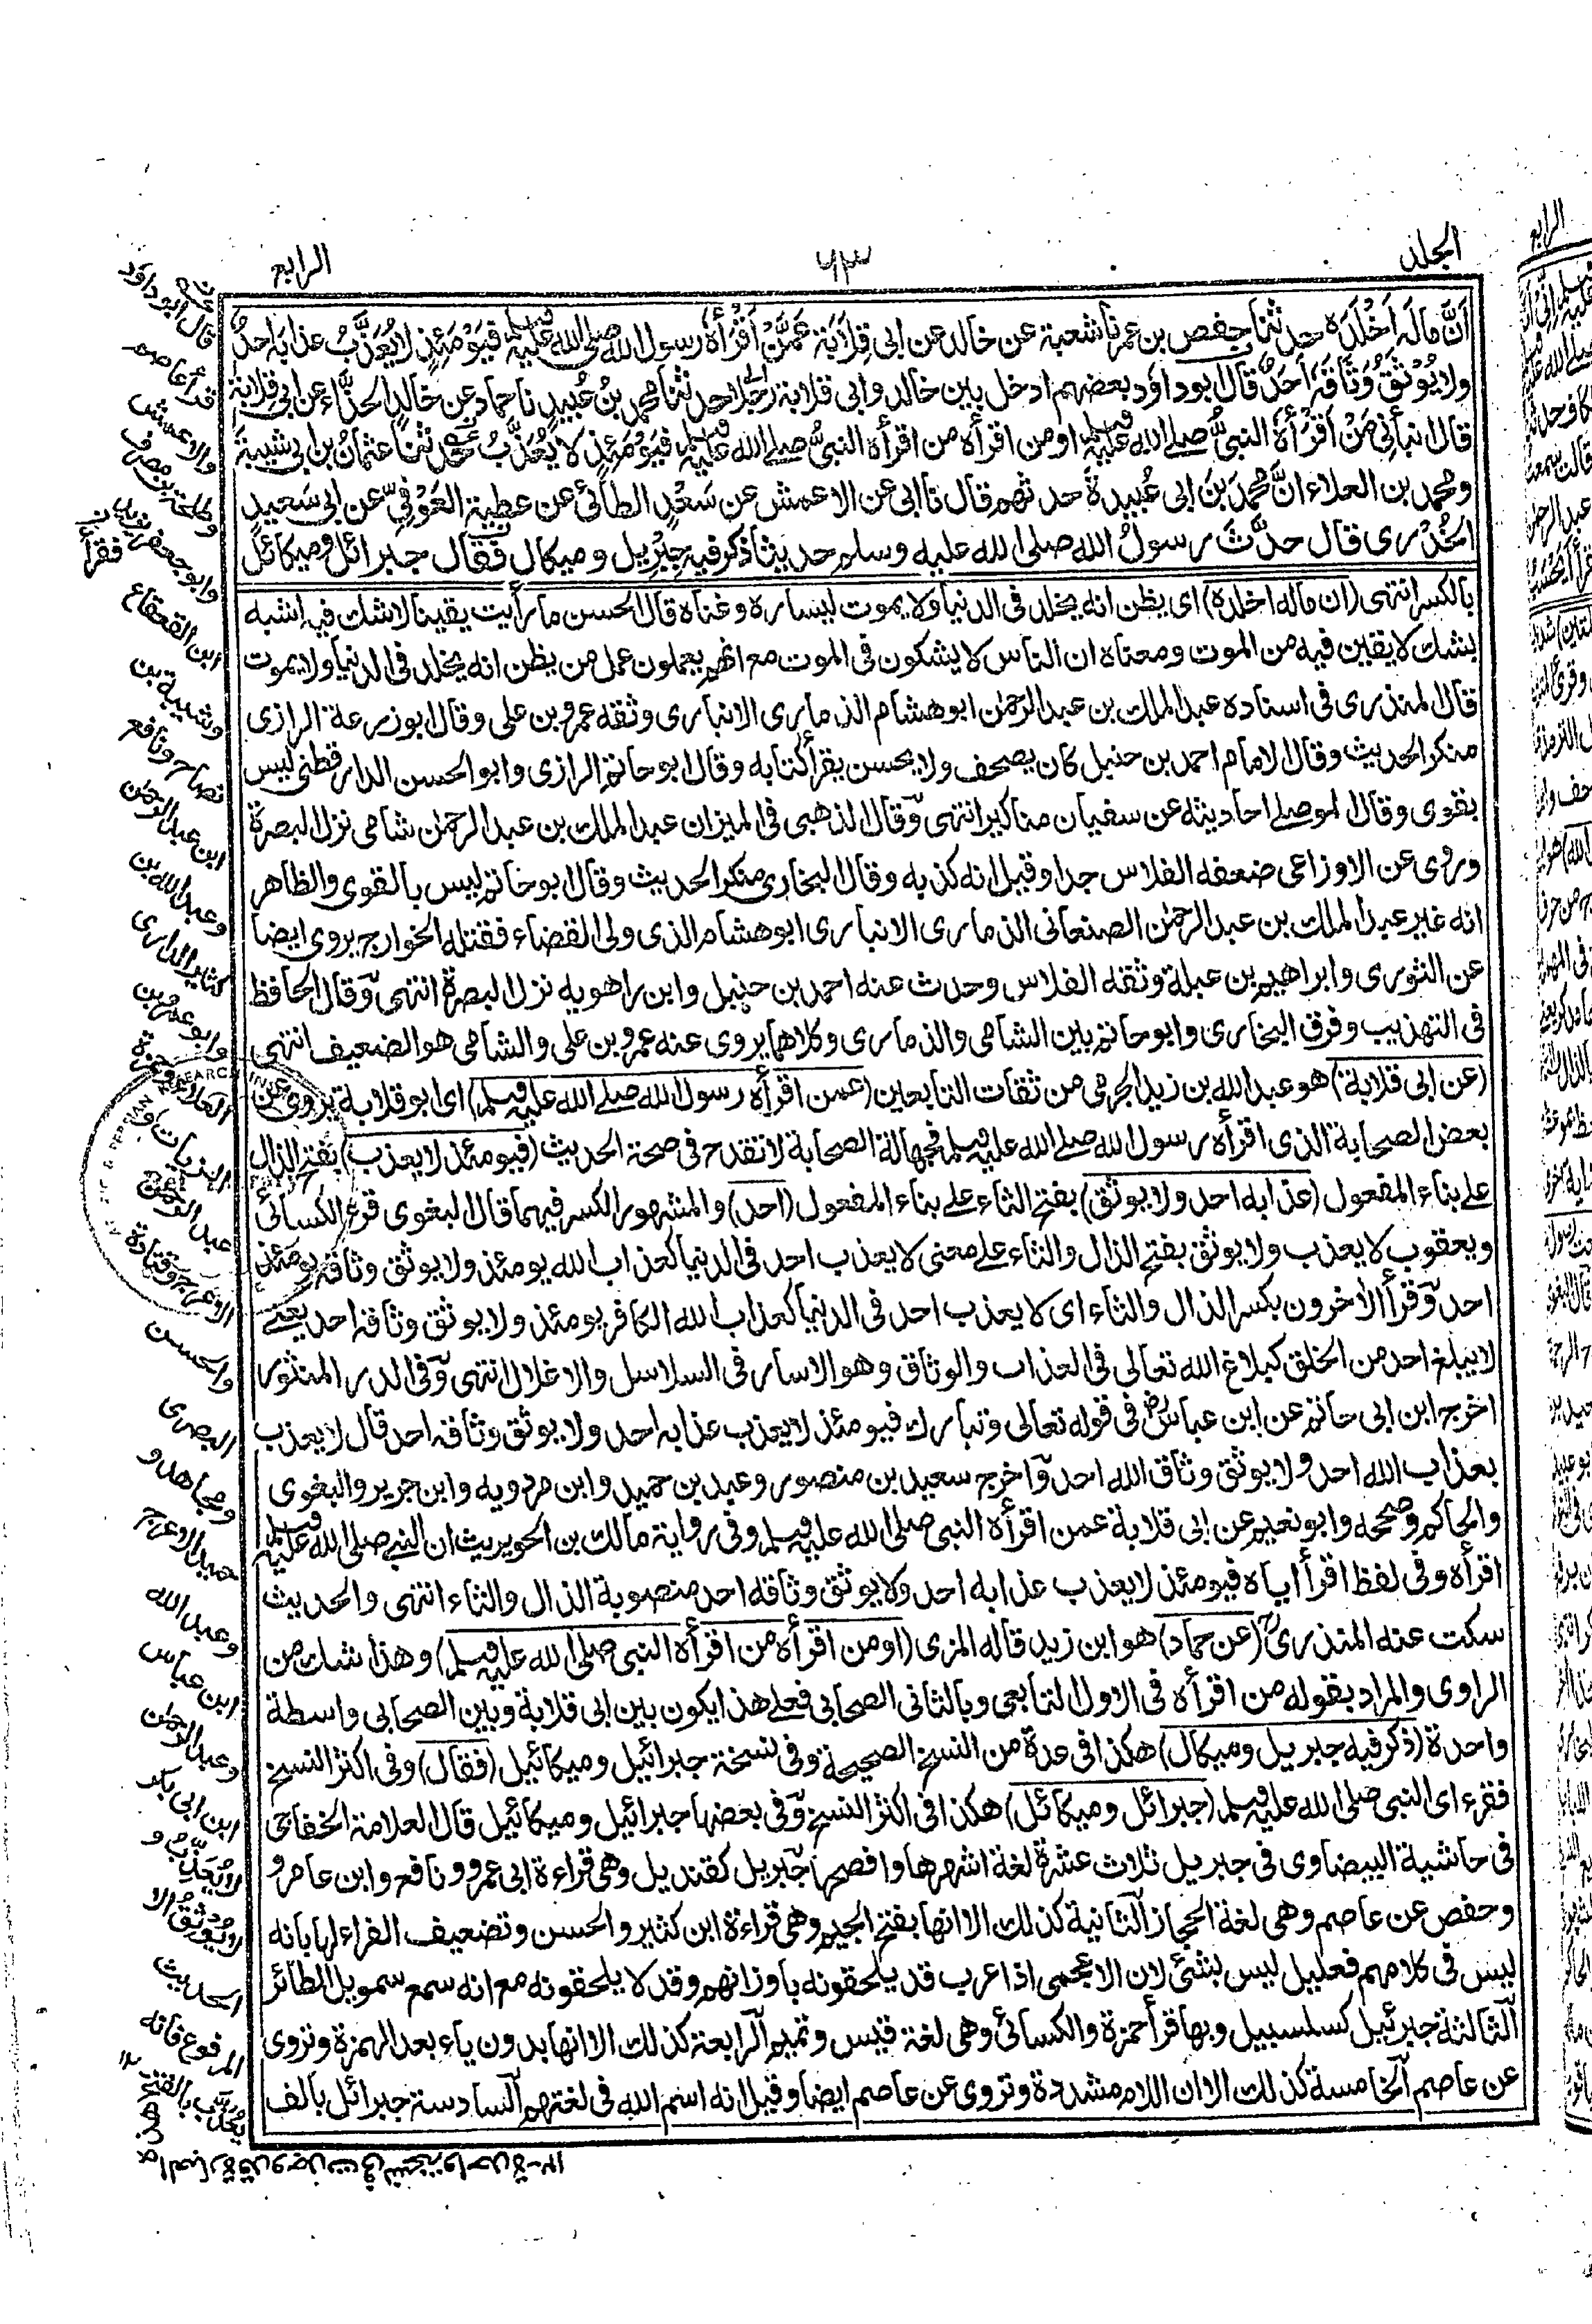 المجلد
٦٣
الرابع
اَنَّ مالَه اَخْلَدَه حدثنا حفص بن عمر نا شعبة عن خالد عن ابى قِلابَة عَمَّنْ اَقْرأه رسول الله صلى الله عليه وسلم فيَوْمَئِذٍ لا يُعَذَّبُ عذابَه احدٌ
ولا يُوْثَقُ وَثَاقَه اَحَدٌ قال ابوداؤد بعضهم ادخل بين خالد وابى قلابة رجلا حدثنا محمد بنُ عُبيدٍ نا حماد عن خالدٍ الحذَّاء عن ابى قلابة
قال انبأنى مَنْ اَقْرَأهُ النبىُّ صلے الله عليه وسلم او من اقرأه من اقرأه النبىُّ صلے الله عليه وسلم فيَوْمَئِذٍ لا يُعَذَّبُ حدثنا عثمانُ بن ابى شيبة
ومحمد بن العلاء انَّ محمدَ بنَ ابى عُبيدةَ حدثهم قال نا ابى عن الاعمش عن سَعْدٍ الطائى عن عطية العَوْفىّ عن ابى سَعيدٍ
الخُدْرى قال حدَّثَ رسولُ الله صلى الله عليه وسلم حديثا ذكر فيه جِبْرِيل وميكال فقال جبرائل وميكائل
بالكسر انتهى (ان ماله اخلده) اى يظن انه يخلد فى الدنيا ولا يموت ليساره وغناه قال الحسن ما رأيت يقينا لا شك فيه اشبه
بشك لا يقين فيه من الموت ومعناه ان الناس لا يشكون فى الموت مع انهم يعملون عمل من يظن انه يخلد فى الدنيا ولا يموت
قال المنذرى فى اسناده عبد الملك بن عبد الرحمٰن ابوهشام الذمارى الانبارى وثقه عمرو بن على وقال ابوزرعة الرازى
منكر الحديث وقال الامام احمد بن حنبل كان يصحف ولا يحسن يقرأ كتابه وقال ابوحاتم الرازى وابو الحسن الدارقطنى ليس
بقوى وقال الموصلے احاديثه عن سفيان مناكير انتهى وقال الذهبى فى الميزان عبد الملك بن عبد الرحمٰن شامى نزل البصرة
وروى عن الاوزاعى ضعفه الفلاس جدا وقيل انه كذبه وقال البخارى منكر الحديث وقال ابوحاتم ليس بالقوى والظاهر
انه غير عبد الملك بن عبد الرحمٰن الصنعانى الذمارى الانبارى ابوهشام الذى ولى القضاء فقتله الخوارج يروى ايضا
عن الثورى وابراهيم بن عبلة وثقه الفلاس وحدث عنه احمد بن حنبل وابن راهويه نزل البصرة انتهى وقال الحافظ
فى التهذيب وفرق البخارى وابوحاتم بين الشامى والذمارى وكلاهما يروى عنه عمرو بن على والشامى هو الضعيف انتهى
(عن ابى قلابة) هو عبد الله بن زيد الجرمى من ثقات التابعين (عمن اقرأه رسول الله صلے الله عليه وسلم) اى ابوقلابة يروى عن
بعض الصحابة الذى اقرأه رسول الله صلے الله عليه وسلم فجهالة الصحابة لا تقدح فى صحة الحديث (فيومئذ لا يعذب) بفتح الذال
علے بناء المفعول (عذابه احد ولا يوثق) بفتح الثاء علے بناء المفعول (احد) والمشهور الكسر فيهما قال البغوى قرء الكسائى
ويعقوب لا يعذب ولا يوثق بفتح الذال والثاء علے معنى لا يعذب احد فى الدنيا كعذاب الله يومئذ ولا يوثق وثاقه يومئذ
احد وقرأ الاخرون بكسر الذال والثاء اى لا يعذب احد فى الدنيا كعذاب الله الكافر يومئذ ولا يوثق وثاقه احد يعنے
لا يبلغ احد من الخلق كبلاغ الله تعالى فى العذاب والوثاق وهو الاسار فى السلاسل والاغلال انتهى وفى الدر المنثور
اخرج ابن ابى حاتم عن ابن عباس رض فى قوله تعالى وتبارك فيومئذ لا يعذب عذابه احد ولا يوثق وثاقه احد قال لا يعذب
بعذاب الله احد ولا يوثق وثاق الله احد واخرج سعيد بن منصور وعبد بن حميد وابن مردويه وابن جرير والبغوى
والحاكم وصححه وابونعيم عن ابى قلابة عمن اقرأه النبى صلى الله عليه وسلم وفى رواية مالك بن الحويريث ان النبے صلى الله عليه وسلم
اقرأه وفى لفظ اقرأ اياه فيومئذ لا يعذب عذابه احد ولا يوثق وثاقه احد منصوبة الذال والثاء انتهى والحديث
سكت عنه المنذرى (عن حماد) هو ابن زيد قاله المزى (او من اقرأه من اقرأه النبى صلى الله عليه وسلم) وهذا شك من
الراوى والمراد بقوله من اقرأه فى الاول التابعى وبالثانى الصحابى فعلے هذا يكون بين ابى قلابة وبين الصحابى واسطة
واحدة (ذكر فيه جبريل وميكال) هكذا فى عدة من النسخ الصحيحة وفى نسخة جبرائيل وميكائيل (فقال) وفى اكثر النسخ
فقرء اى النبى صلى الله عليه وسلم (جبرائل وميكائل) هكذا فى اكثر النسخ وفى بعضها جبرائيل وميكائيل قال العلامة الخفاجى
فى حاشية البيضاوى فى جبريل ثلاث عشرة لغة اشهرها وافصحها جبريل كقنديل وهى قراءة ابى عمرو ونافع وابن عامر و
وحفص عن عاصم وهى لغة الحجاز الثانية كذلك الا انها بفتح الجيم وهى قراءة ابن كثير والحسن وتضعيف الفراء لها بانه
ليس فى كلامهم فعليل ليس بشئ لان الاعجمى اذا عرب قد يلحقونه باوزانهم وقد لا يلحقونه مع انه سمع سمويل لطائر
الثالثة جبرئيل كسلسبيل وبها قرأ حمزة والكسائى وهى لغة قيس وتميم الرابعة كذلك الا انها بدون ياء بعد الهمزة وتروى
عن عاصم الخامسة كذلك الا ان اللام مشددة وتروى عن عاصم ايضا وقيل انه اسم الله فى لغتهم السادسة جبرائل بالف
قال ابوداؤد
قرأ عاصم
والاعمش
وطلحة بن مصرف
وابوجعفر يزيد
ابن القعقاع
وشيبة بن
نصاح ونافع
ابن عبد الرحمٰن
وعبد الله بن
كثير الدارى
وابو عمرو بن
العلاء وحمزة
الزيات و
عبد الرحمٰن
الاعرج وقتادة
والحسن
البصرى
ومجاهد و
حميد الاعرج
وعبد الله
ابن عباس
وعبد الرحمٰن
ابن ابى بكر
لا يُعَذِّبُ و
لا يُوثِقُ الا
الحديث
المرفوع فانه
يُعَذَّب بالفتح